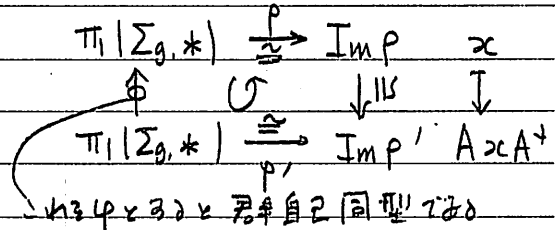 π₁(Σg, *) —ρ, ≅→ Im ρ x
↑ ↺ ↓≅ ↓
π₁(Σg, *) —≅, ρ'→ Im ρ' AxA⁻¹
これをφとすると 群自己同型である